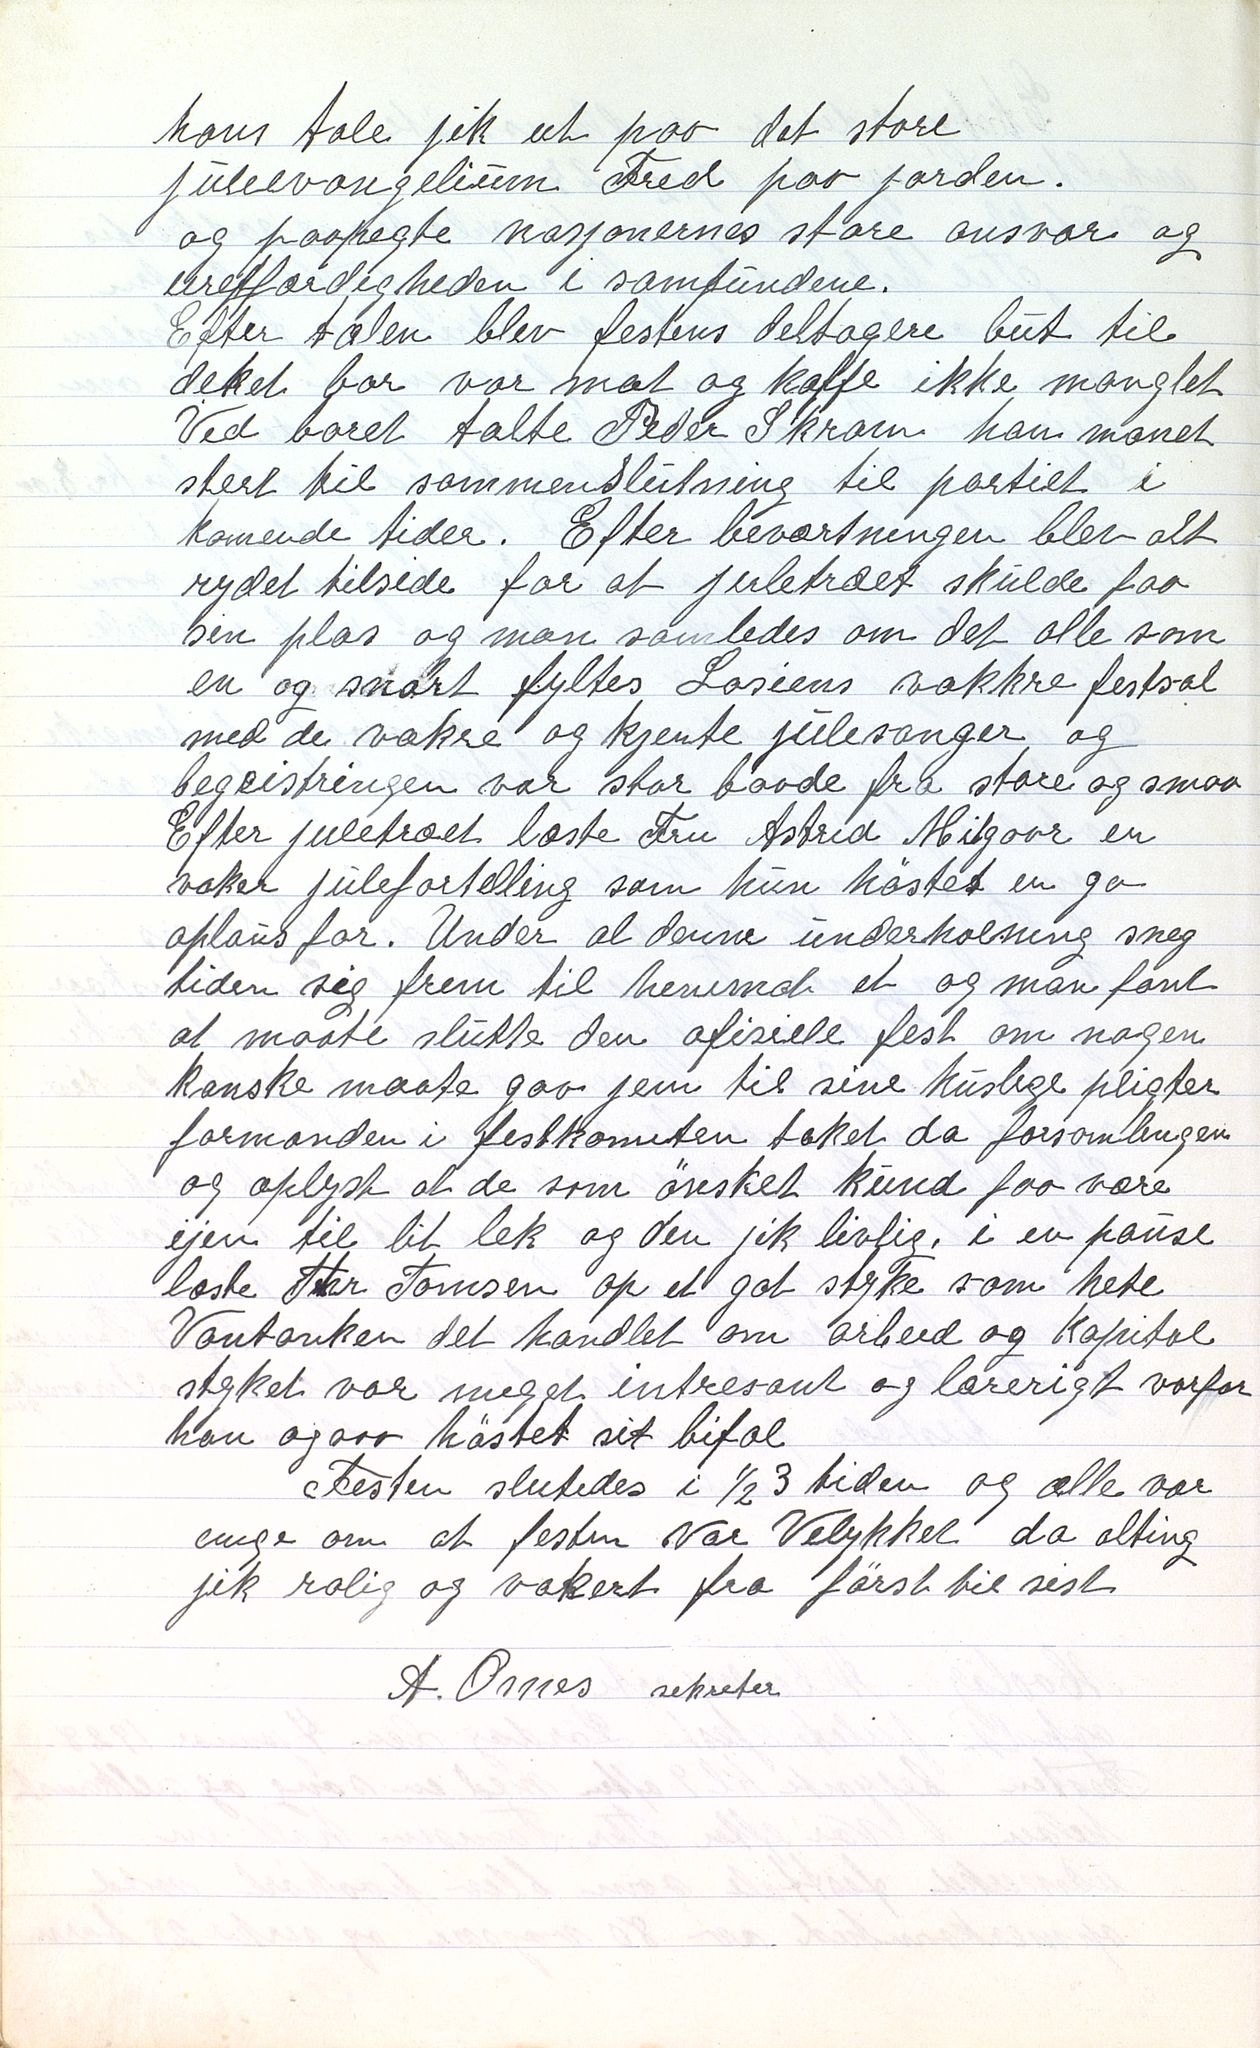 hans tale jik ut paa det store
juleevangelium Fred paa jorden.
og paapegte nasjonernes store ansvar og
uretfærdigheden i samfundene.
Efter talen blev festens deltagere but til
deket bor var mat og kaffe ikke manglet
Ved boret talte Peder Skram han manet
stert til sammenslutning til partiet i
komende tider. Efter beværtningen blev alt
rydet tilside for at juletræet skulde faa
sin plas og man samledes om det alle som
en og snart fyltes Losiens vakkre festsal
med de vakre og kjente julesanger og
begeistringen var stor baade fra store og smaa
Efter juletræet læste Fru Astrid Milgaar en
vaker julefortelling som hun høstet en ga
aplaus for. Under al denne underholning sneg
tiden sig frem til henimod et og man fant
at maate slutte den ofisiele fest om nogen
kanske maate gaa jem til sine huslege pligter
formanden i festkomiten taket da forsamlingen
og oplyst at de som ønsket kund faa være
ijen til lit lek og den jik livlig. i en pause
læste Thr Tomsen op et got styke som hete
Vantanken det handlet om arbeid og kapital
styket var meget intresant og lærerigt varfor
han ogsaa høstet sit bifal
Festen slutedes i ½ 3 tiden og alle var
enige om at festen var Velykket da alting
jik rolig og vakert fra først til sist
A. Ornes sekretær